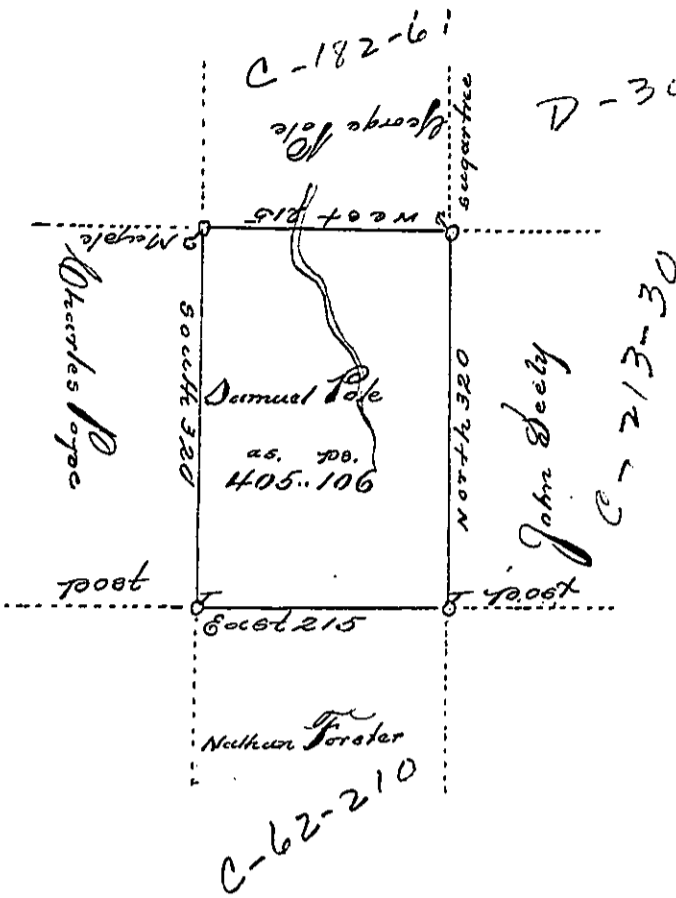 C-182-61
D-30
George Pole
sugartree
west 215
Maple
Charles
South 320
Samuel Pole
as. ps.
405..106
North 320
John Seely
C-213-30
post
post
East 215
Nathan Forster
C-62-210